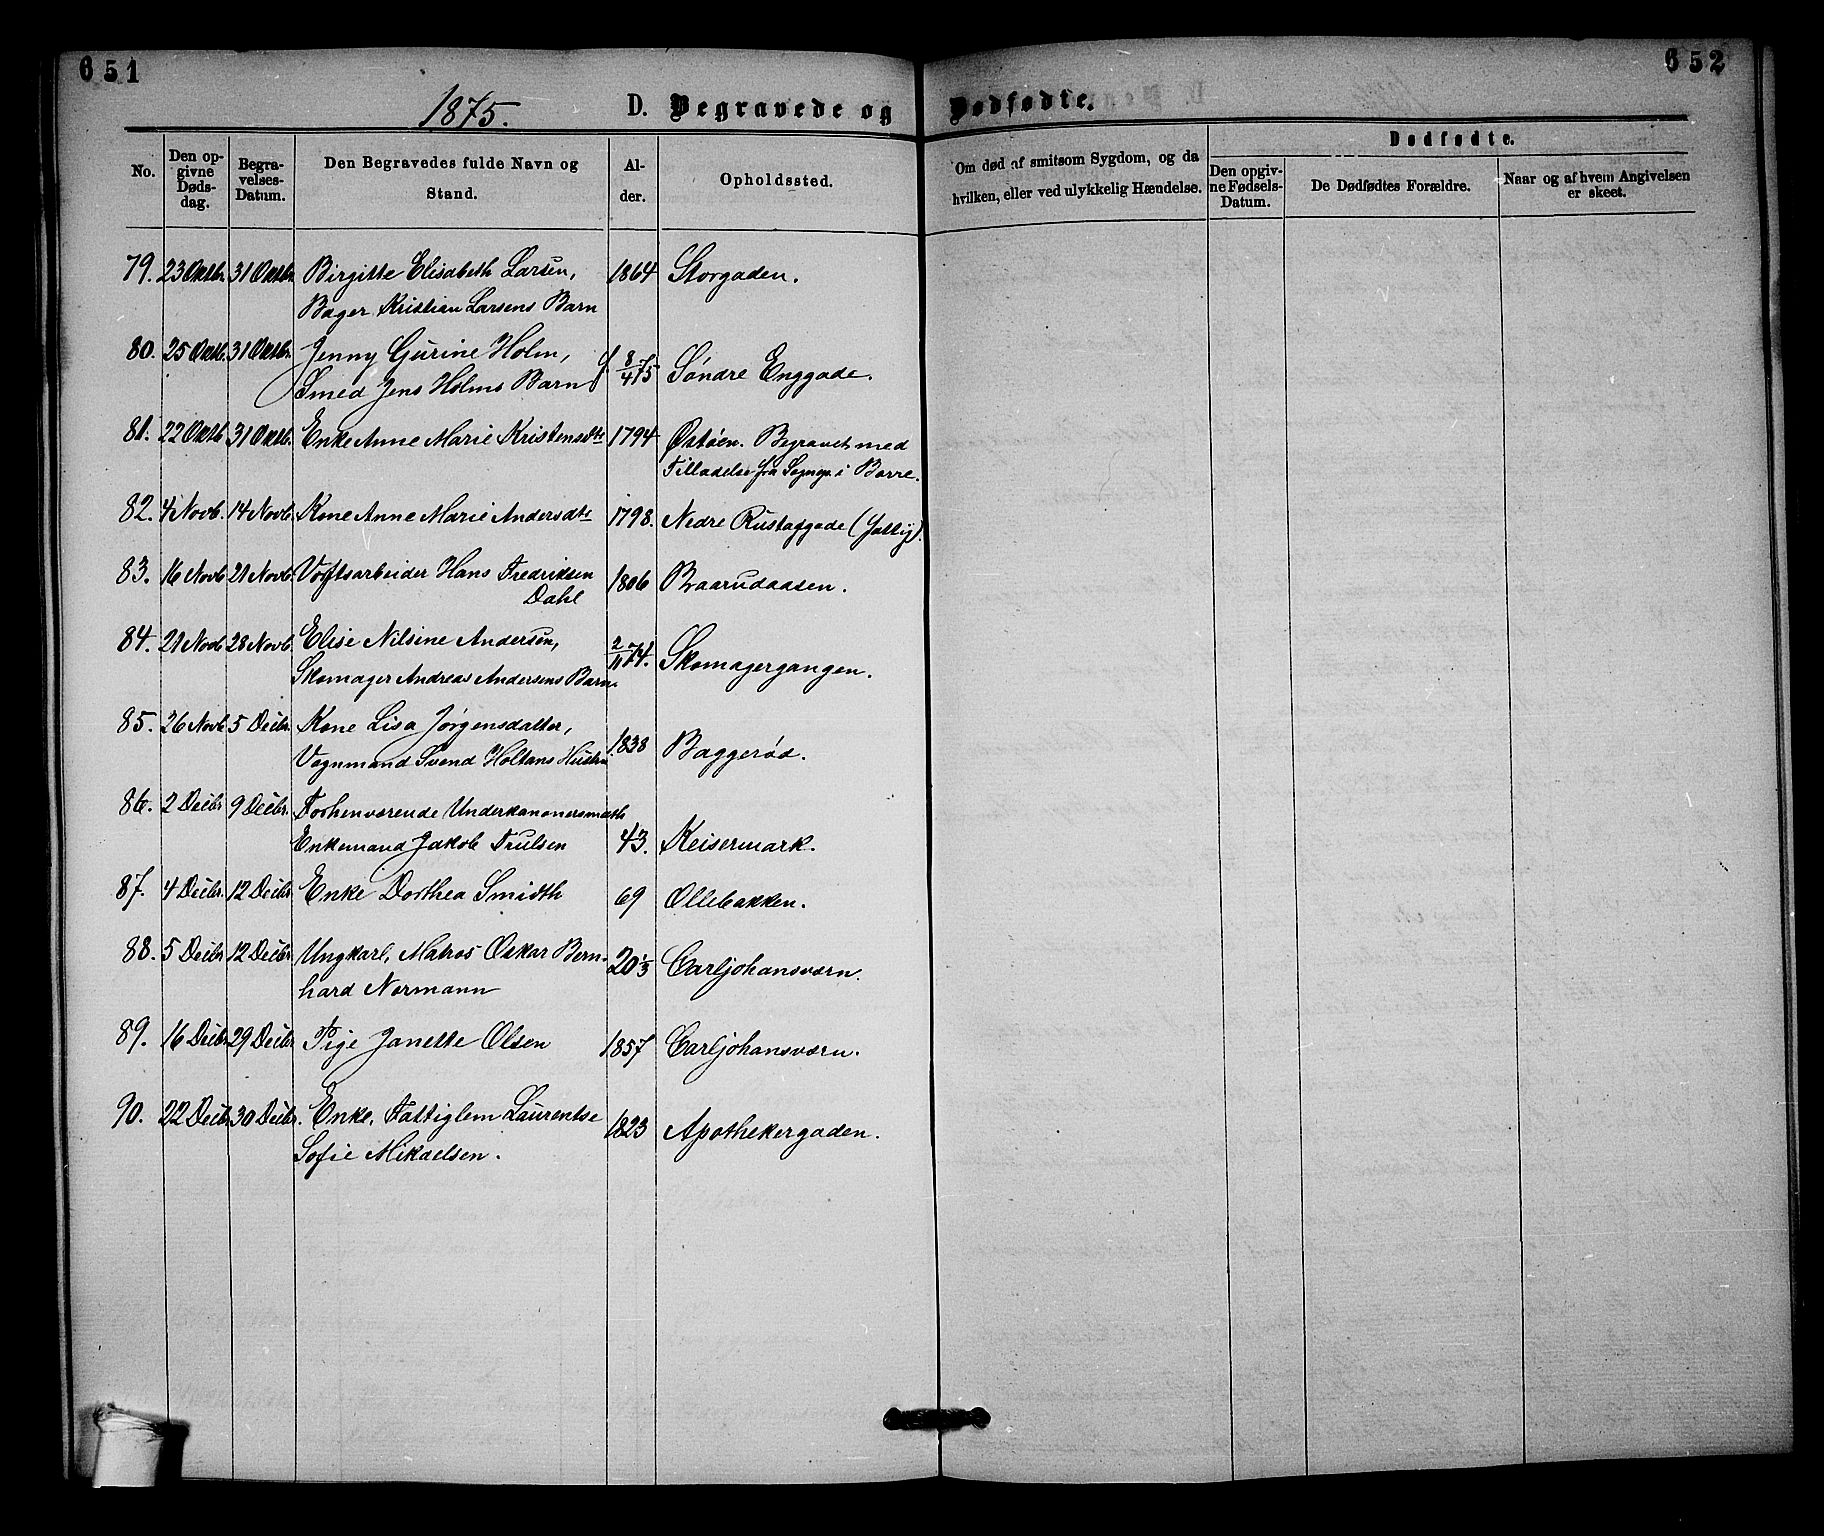 651
652
1875. D. Begravede og Dødfødte.
No. Den opgivne Dødsdag. Begravelses-Datum. Den Begravedes fulde Navn og Stand. Alder. Opholdssted. Om død af smitsom Sygdom, og da hvilken, eller ved ulykkelig Hændelse. Dødfødte.
Den opgivne Fødsels-Datum. De Dødfødtes Forældre. Naar og af hvem Angivelsen er skeet.
79. 23 Oktbr. 31 Oktbr. Birgitte Elisabeth Larsen, 1864 Storgaden.
Bager Kristian Larsens Barn
80. 25 Oktb. 31 Oktbr. Jenny Gurine Holm, 8/4 75 Søndre Enggade.
Smed Jens Holms Barn
81. 22 Oktb. 31 Oktb. Enke Anne Marie Kristensdtr 1794 Østøen. Begravet med
Tilladelse fra Sognepr. i Borre.
82. 4 Novb. 14 Novb. Kone Anne Marie Andersdtr 1798. Nedre Rustaggade
83. 16 Novb. 21 Novb. Værftsarbeider Hans Fredriksen 1806 Baarudaasen.
Dahl
84. 21 Novb. 28 Novb. Elise Nilsine Andersen, 2/11 74. Skomagergangen.
Skomager Andreas Andersens Barn
85. 26 Novb. 5 Decbr. Kone Lisa Jørgensdatter, 1838 Baggerød.
Vognmand Svend Holtans Hustru
86. 2 Decbr 9 Decbr. Forhenværende Underkanoner
Enkemand Jakob Trulsen 43. Keisermark.
87. 4 Decbr. 12 Decbr Enke Dorthea Smidth 69 Ollebakken.
88. 5 Decbr 12 Decbr Ungkarl, Matros Oskar Bern- 20 1/3 Carljohansværn.
hard Normann
89. 16 Decbr 29 Decbr Pige Janette Olsen 1857 Carljohansværn.
90. 22 Decbr 30 Decbr. Enke, Fattiglem Laurentse 1823 Apothekergaden.
Sofie Mikaelsen.